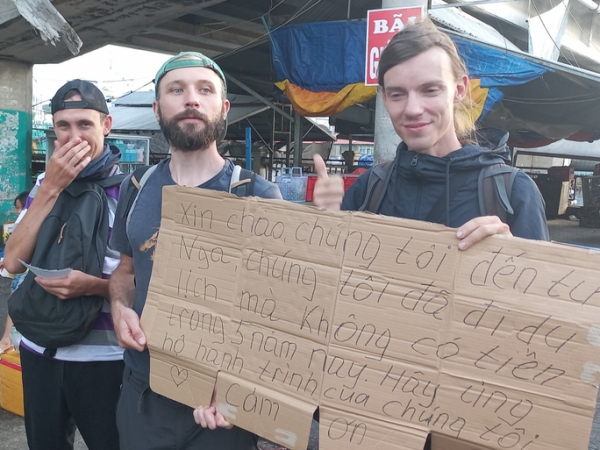 BÃI
Xin chao, chúng tôi đến từ
Nga, chúng tôi đã đi du
lịch mà không có tiền
trong 5 năm nay. Hãy ủng
hộ hành trình của chúng tôi
♡ Cảm ơn